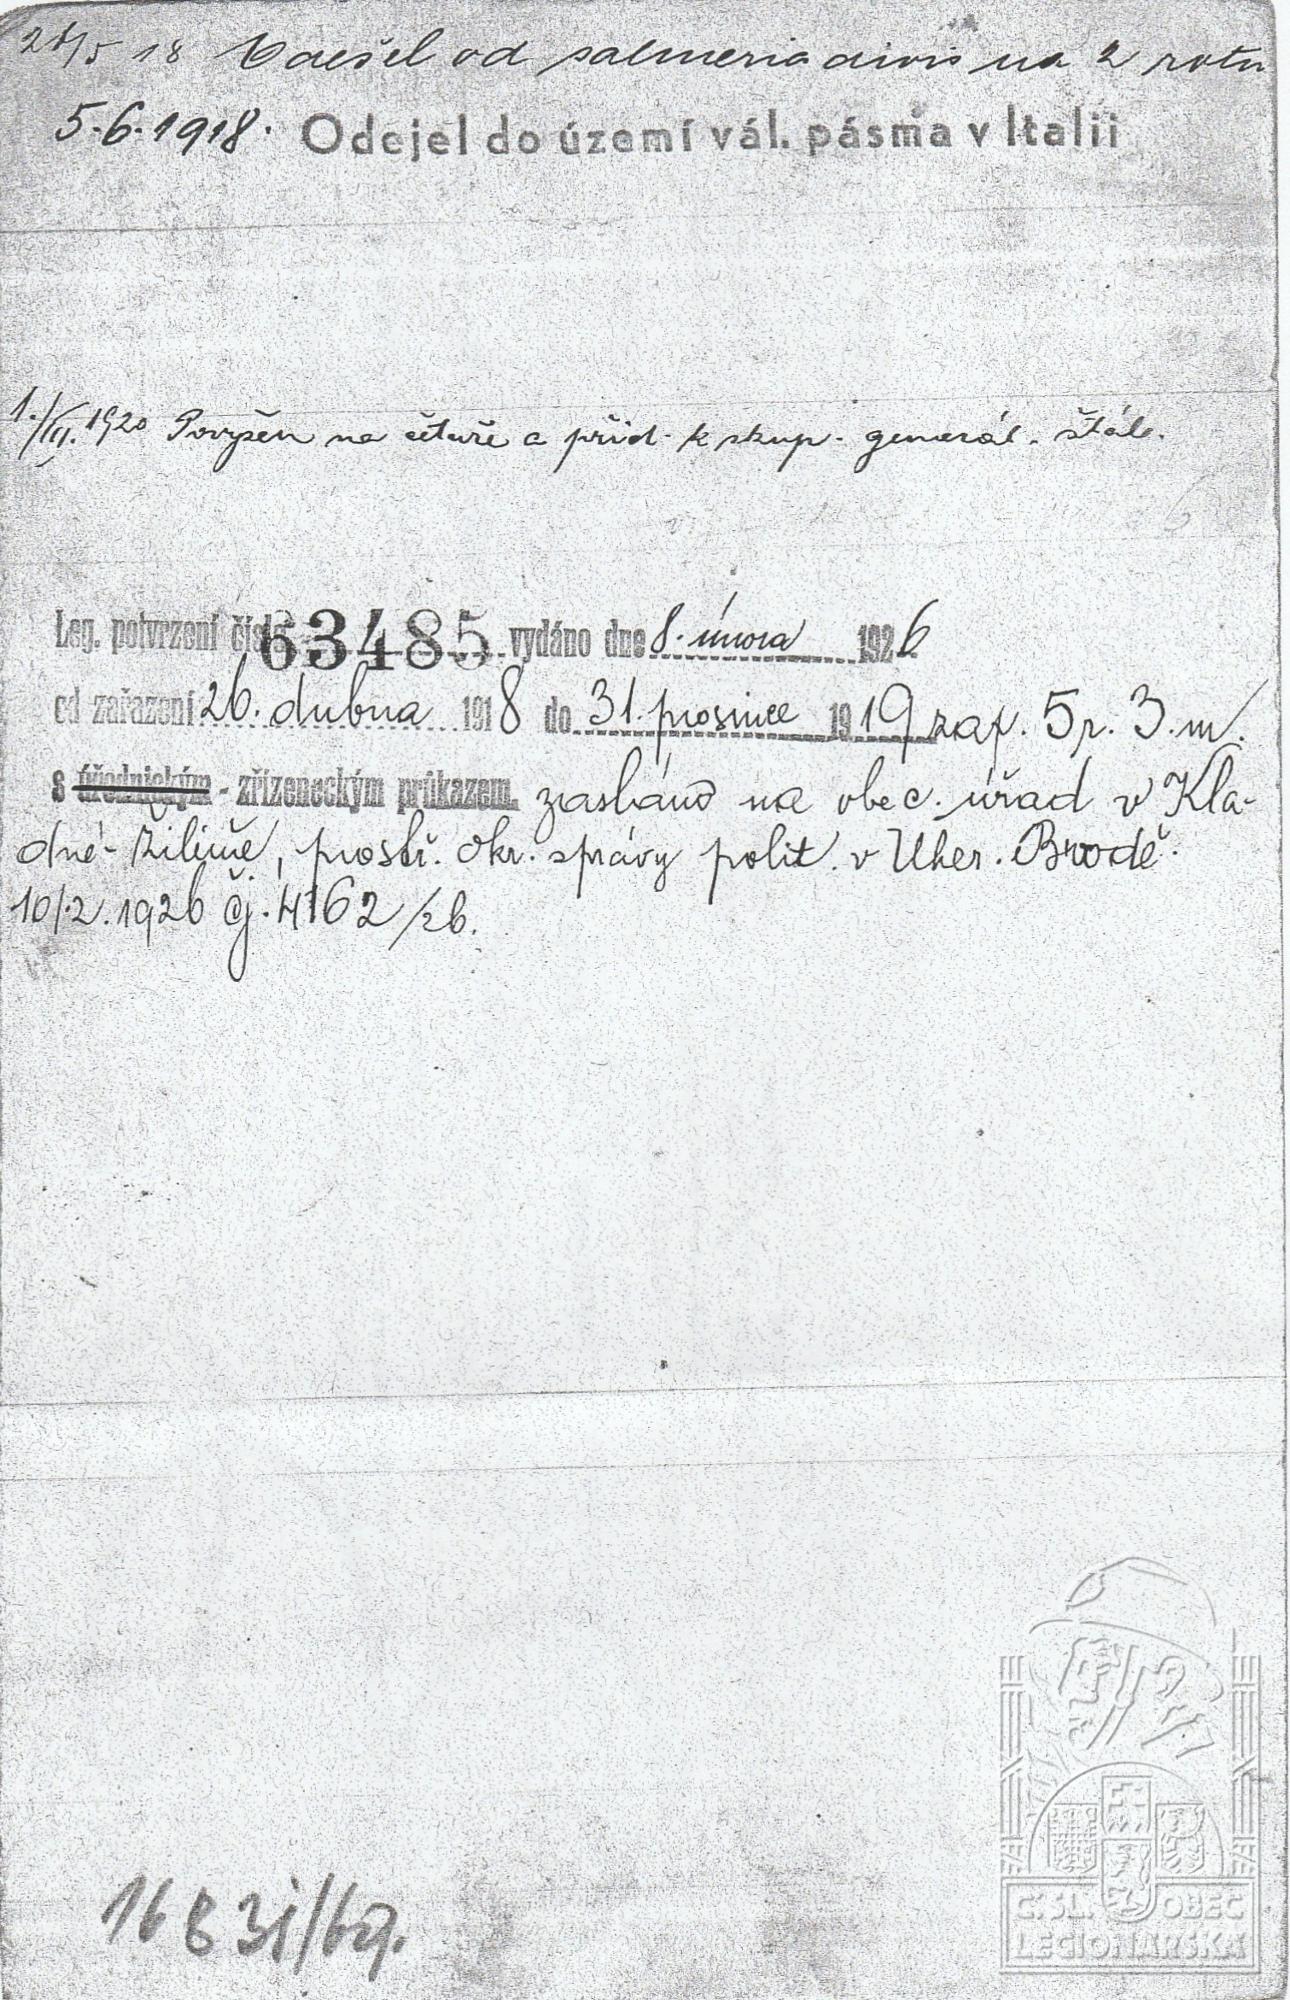 5.6.1918. Odejel do území vál. pásma v Italii
18 Odešel od salmeria divis na 2 rotu
1./III. 1920 Povýšen na četaře a příd. k skup. generál. štáb.
Leg. potvrzení číslo 63485 vydáno dne 8. února 1926
od zařazení 26. dubna 1918 do 31. prosince 1919 zap. 5 r. 3. m.
s úřednickým - zřízeneckým průkazem. zasláno na obec. úřad v Kla-
dné-Žilíně, prostř. okr. správy polit. v Uher. Brodě.
10/2.1926 čj. 4162/26.
Č. SL. OBEC
LEGIONÁŘSKÁ